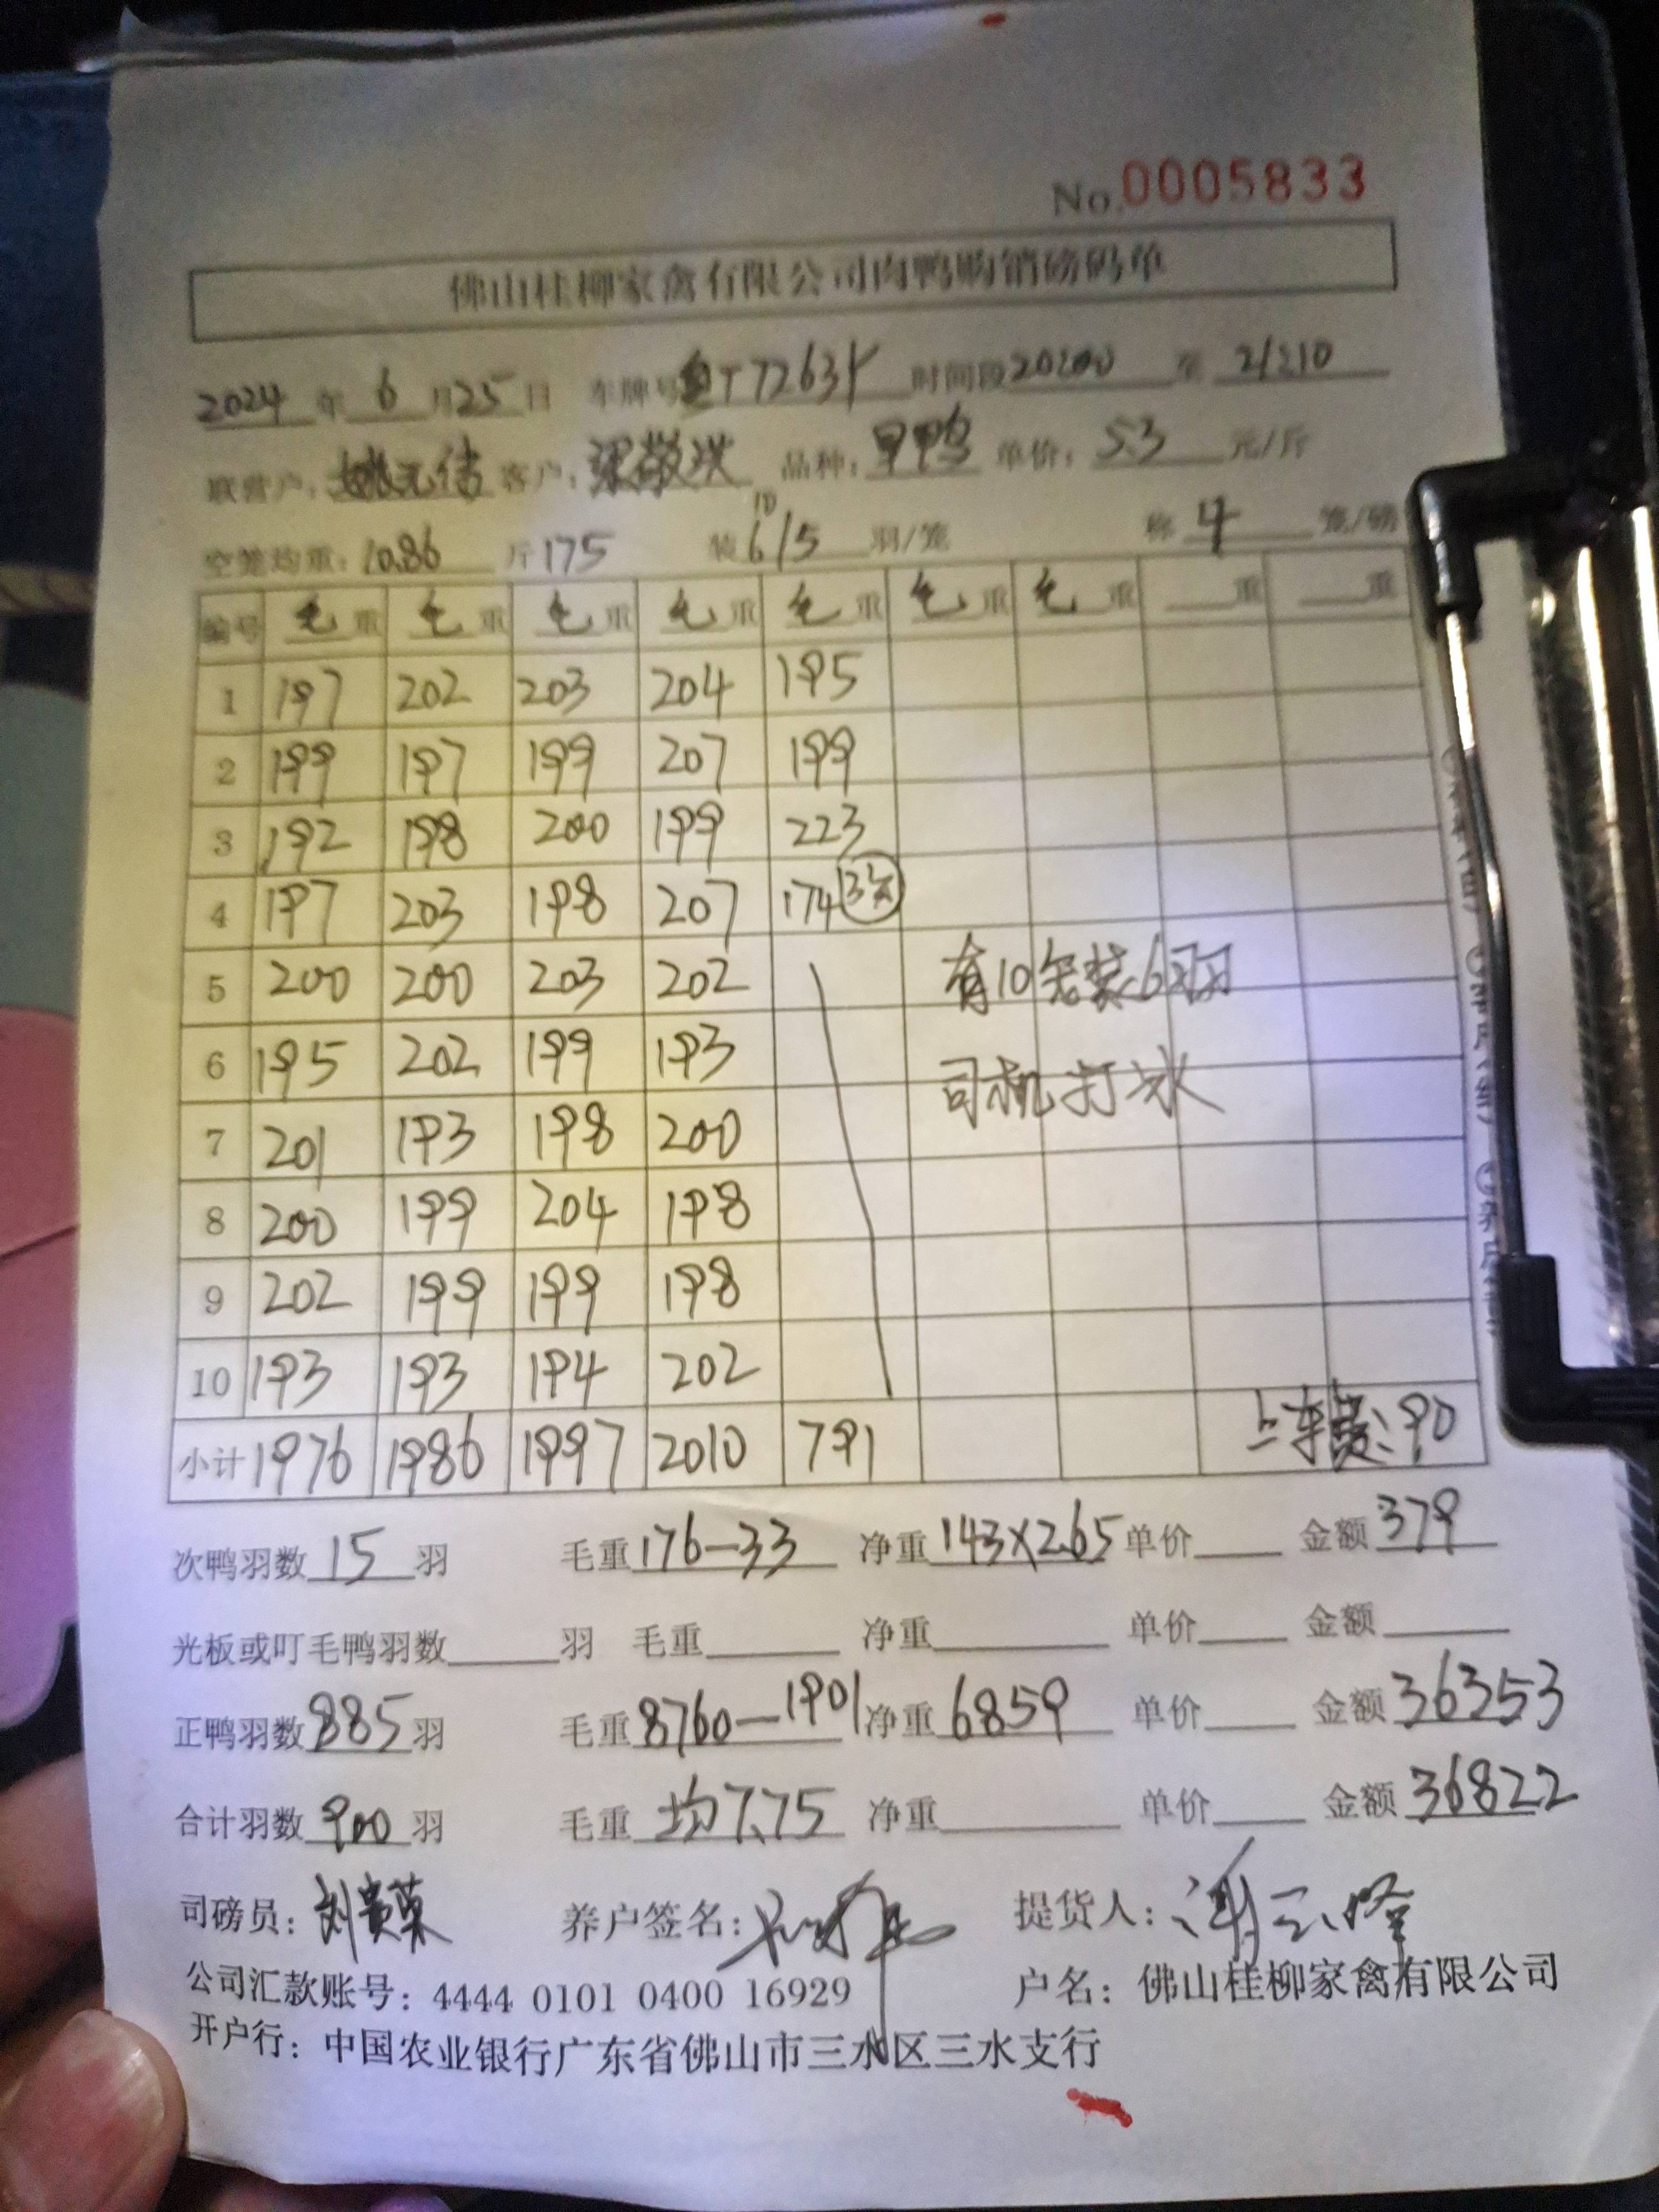 No.0005833
佛山桂柳家禽有限公司肉鸭购销磅码单
2024 年 6 月 25 日 车牌号 T7263Y 时间段 20:00 至 21:10
联营户: 客户: 梁敬洪 品种: 单价: 5.3 元/斤
空笼均重: 10.86 斤 175 装 6/5 羽/笼 称 4 笼/磅
10
编号 毛重 毛重 毛重 毛重 毛重 毛重 毛重 重 重
1 197 202 203 204 195
2 199 197 199 207 199
3 192 198 200 199 223
4 197 203 198 207 174
5 200 200 203 202 有10笼装6羽
6 195 202 199 193
7 201 193 198 200 司机打水
8 200 199 204 198
9 202 199 199 198
10 193 193 194 202
小计 1976 1986 1997 2010 791 上车费:90
次鸭羽数 15 羽 毛重 176-33 净重 143×2.65 单价 金额 379
光板或叮毛鸭羽数 羽 毛重 净重 单价 金额
正鸭羽数 885 羽 毛重 8760-1901 净重 6859 单价 金额 36353
合计羽数 900 羽 毛重 均7.75 净重 单价 金额 36822
司磅员: 刘贵荣 养户签名: 提货人:
公司汇款账号: 4444 0101 0400 16929 户名: 佛山桂柳家禽有限公司
开户行: 中国农业银行广东省佛山市三水区三水支行